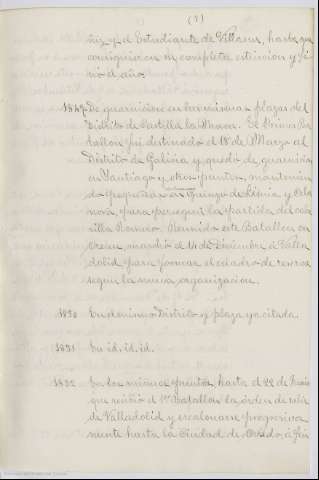 (7)
ñiz y el Estudiante de Villasur, hasta que
consiguieron su completa estincion y fi-
nó el año.
1849. De guarnicion en las mismas plazas del
Distrito de Castilla la Nueva. El Primer Ba-
tallon fué destinado el 18 de Marzo al
Distrito de Galicia, y quedó de guarnicion
en Santiago y otros puntos, mantenien-
do pequeñas en Quinzo de Limia y Cela-
nova, para perseguir la partida del cabe-
cilla Romero. Reunido este Batallon en
Orense marchó el 14 de Diciembre á Valla-
dolid para formar el cuadro de reserva
segun la nueva organizacion.
1850 En el mismo Distrito y plaza ya citada.
1851 En id. id. id.
1852 En los mismos puntos, hasta el 22 de Junio
que recibió el 1er Batallon la órden de salir
de Valladolid y escalonarse progresiva-
mente hasta la Ciudad de Oviedo, á fin